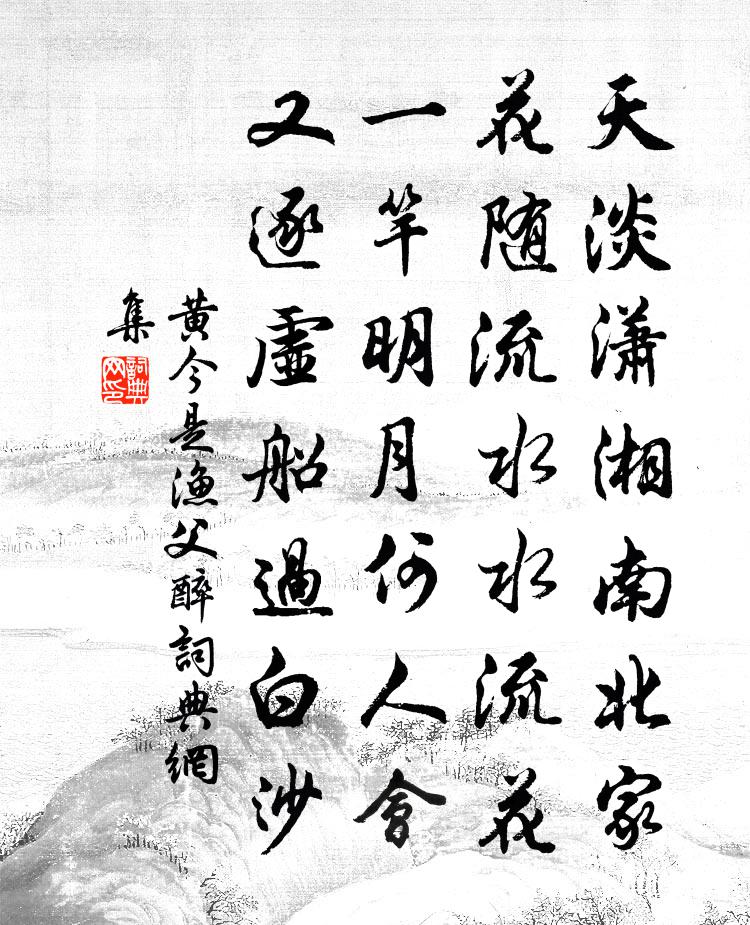 天淡潇湘南北家
花随流水水流花
一竿明月何人會
又逐虛船過白沙
黄今是漁父醉詞典網
集
詞典
网印